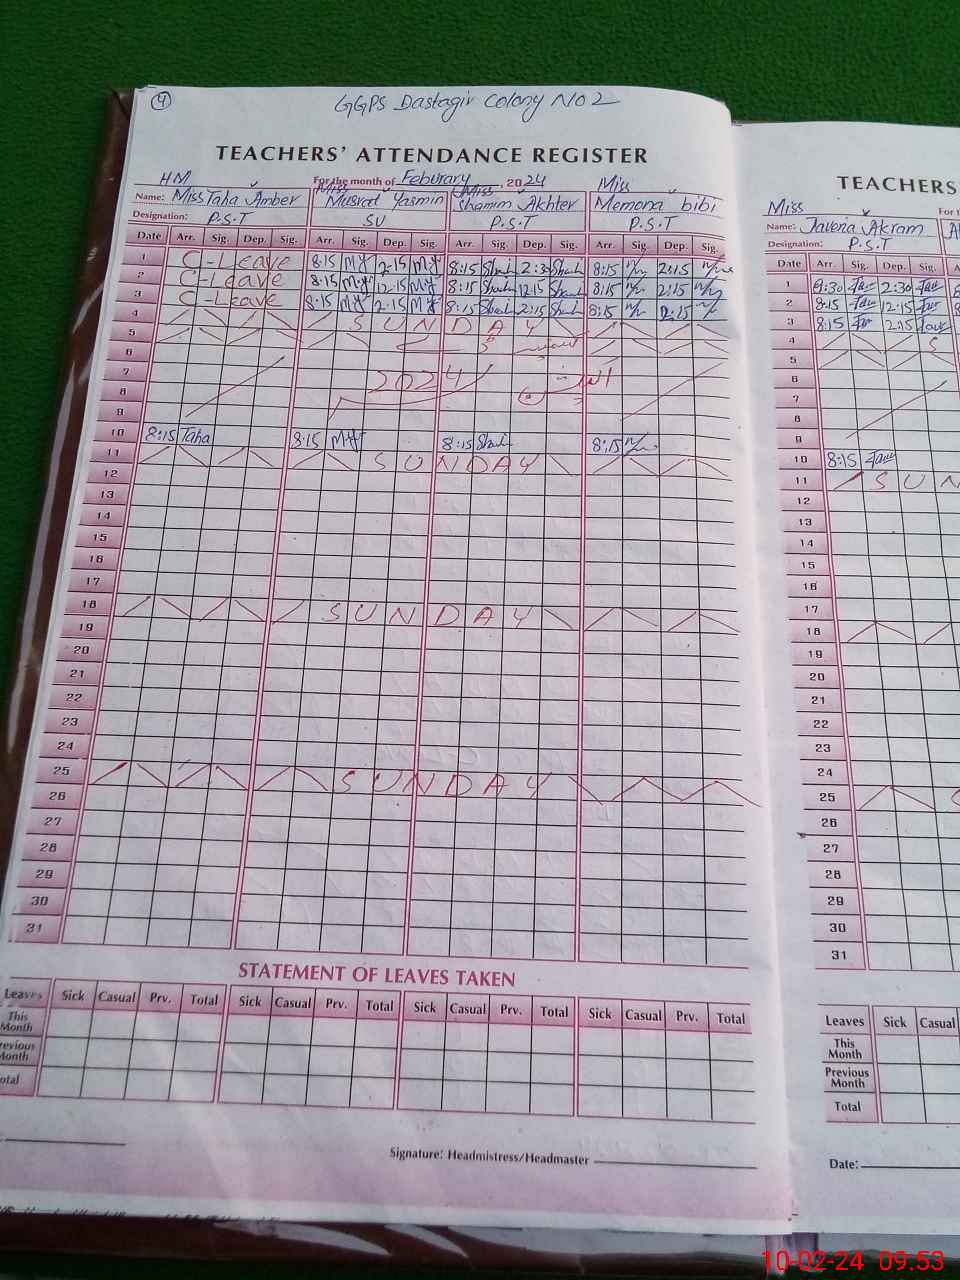 4
GGPS Dastagir Colony No 2
TEACHERS' ATTENDANCE REGISTER
For the month of Feburary, 2024
HM Miss Miss Miss
Name: Miss Taha Amber Musrat Yasmin Shamim Akhter Memona bibi
Designation: P.S.T SV P.S.T P.S.T
Date Arr. Sig. Dep. Sig. Arr. Sig. Dep. Sig. Arr. Sig. Dep. Sig. Arr. Sig. Dep. Sig.
1 C-Leave 8:15 2:15 8:15 2:30 8:15 2:15
2 C-Leave 8:15 12:15 8:15 12:15 8:15 2:15
3 C-Leave 8:15 2:15 8:15 2:15 8:15 2:15
4 SUNDAY
5
6
7
8 2024
9
10 8:15 Taha 8:15 8:15 8:15
11 SUNDAY
12
13
14
15
16
17
18 SUNDAY
19
20
21
22
23
24
25 SUNDAY
26
27
28
29
30
31
STATEMENT OF LEAVES TAKEN
Leaves Sick Casual Prv. Total Sick Casual Prv. Total Sick Casual Prv. Total Sick Casual Prv. Total
This Month
revious Month
otal
Signature: Headmistress/Headmaster
TEACHERS
For t
Miss
Name: Javeria Akram
Designation: P.S.T
Date Arr. Sig. Dep. Sig. A
1 8:30 2:30
2 8:15 12:15
3 8:15 2:15
4 S
5
6
7
8
9
10 8:15
11 SUN
12
13
14
15
16
17
18
19
20
21
22
23
24
25
26
27
28
29
30
31
Leaves Sick Casual
This Month
Previous Month
Total
Date:
10-02-24 09.53